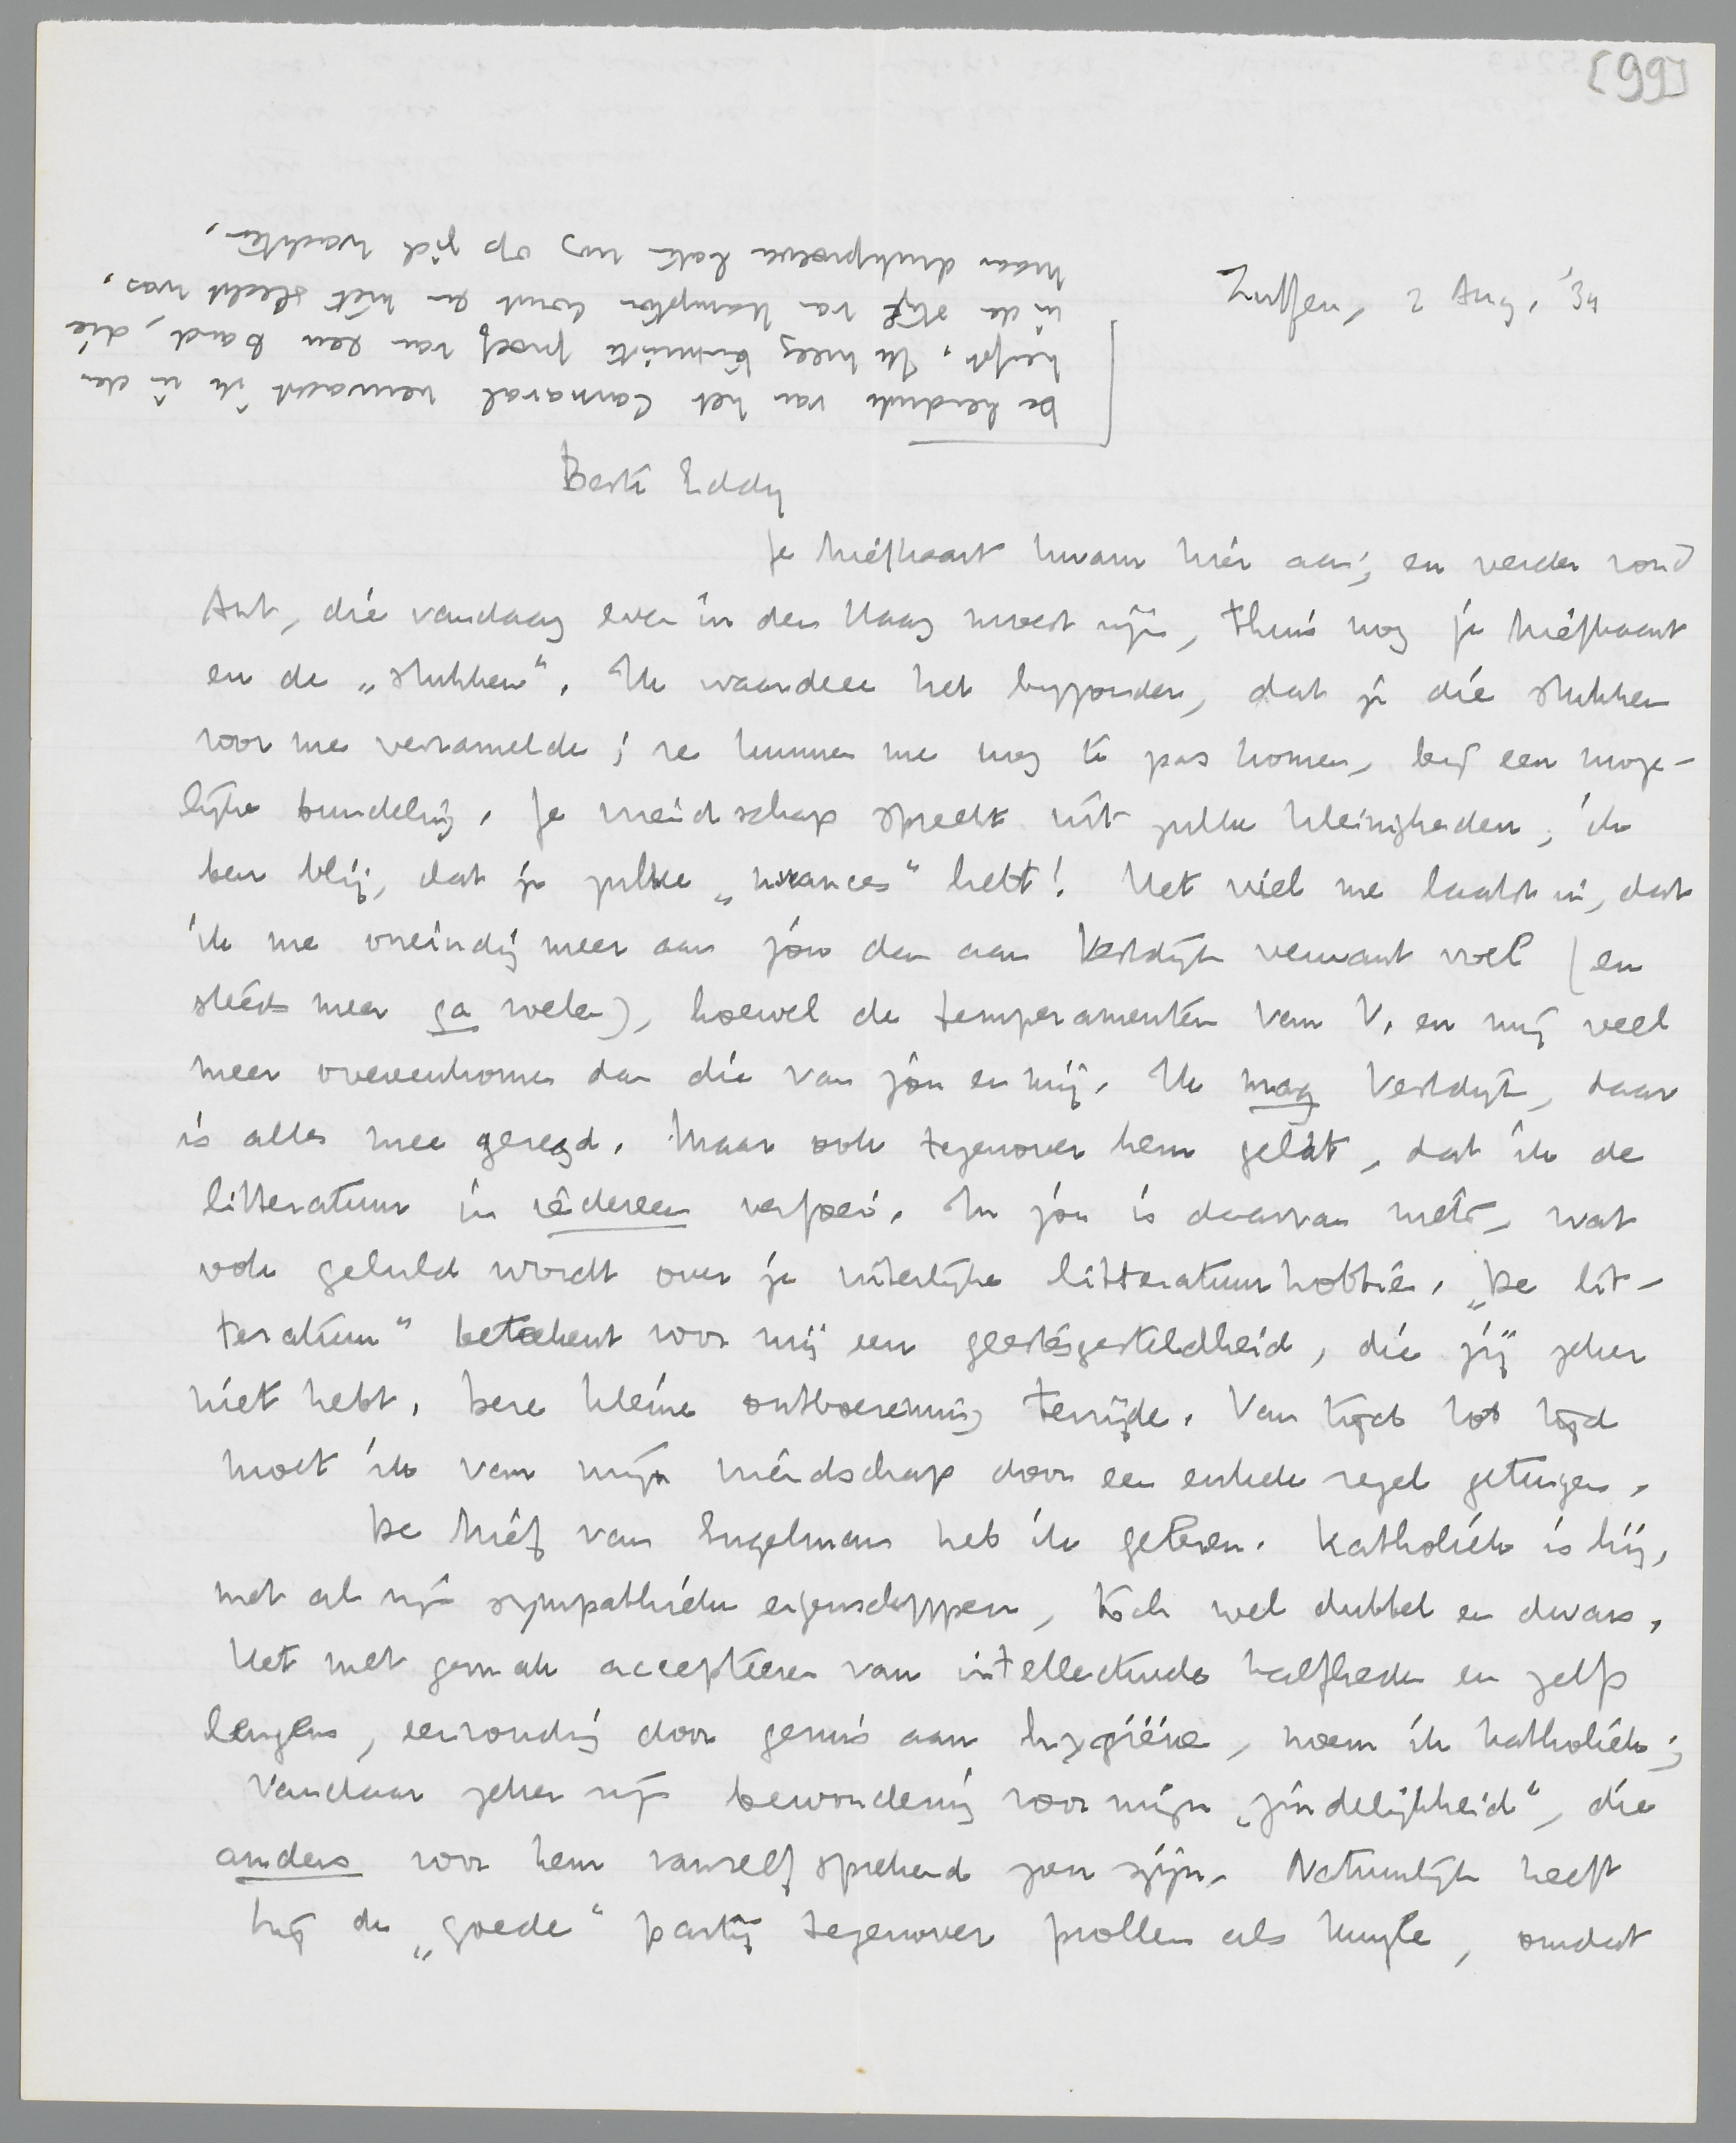 [99]
Zutfen, 2 Aug. '34
De herdruk van het Carnaval verwacht ik in den
herfst. Ik kreeg tenminste proef van een band, die
in de stijl van Hampton Court en niet slecht was,
maar drukproeven laten nog op zich wachten.
Beste Eddy
Je briefkaart kwam hier aan; en verder vond
Ant, die vandaag even in den Haag moest zijn, thuis nog je briefkaart
en de „stukken". Ik waardeer het byzonder, dat je die stukken
voor me verzamelde; ze kunnen me nog te pas komen, bij een moge-
lijke bundeling. Je vriendschap spreekt uit zulke kleinigheden; ik
ben blij, dat je zulke „nuances" hebt! Het viel me laatst in, dat
ik me oneindig meer aan jou dan aan Vestdijk verwant voel (en
steeds meer ga voelen), hoewel de temperamenten van V. en mij veel
meer overeenkomen dan die van jou en mij. Ik mag Vestdijk, daar
is alles mee gezegd. Maar ook tegenover hem geldt, dat ik de
litteratuur in iedereen verfoei. In jou is daarvan niets, wat
ook geluld wordt over je uiterlijke litteratuurhobbie. „De lit-
teratuur" beteekent voor mij een geestesgesteldheid, die jij zeker
niet hebt. Deze kleine ontboezeming terzijde. Van tijd tot tijd
moet ik van mijn vriendschap door een enkele regel getuigen.
De brief van Engelman heb ik gelezen. Katholiek is hij,
met al zijn sympathieke eigenschappen, toch wel dubbel en dwars.
Het met gemak accepteeren van intellectueele halfheden en zelfs
leugens, eenvoudig door gemis aan hygiëne, noem ik katholiek;
vandaar zeker zijn bewondering voor mijn „zindelijkheid", die
anders voor hem vanzelf sprekend zou zijn. Natuurlijk heeft
hij de „goede" partij tegenover prollen als Kuyle, omdat